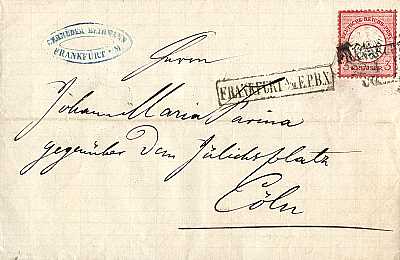 GEBRÜDER BETHMANN
FRANKFURT A/M
Herrn
FRANKFURT A/M E.P.B.X
3
Johann Maria Farina
gegenüber dem Jülichsplatz
Cöln